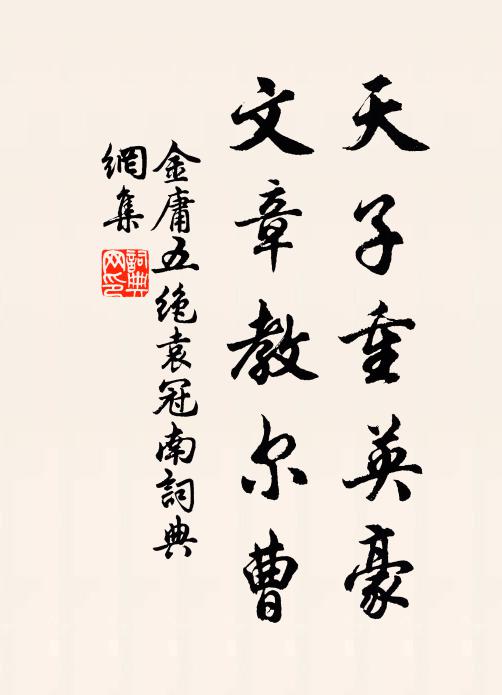 天子重英豪
文章教尔曹
金庸五绝袁冠南詞典
網集
詞典
网印